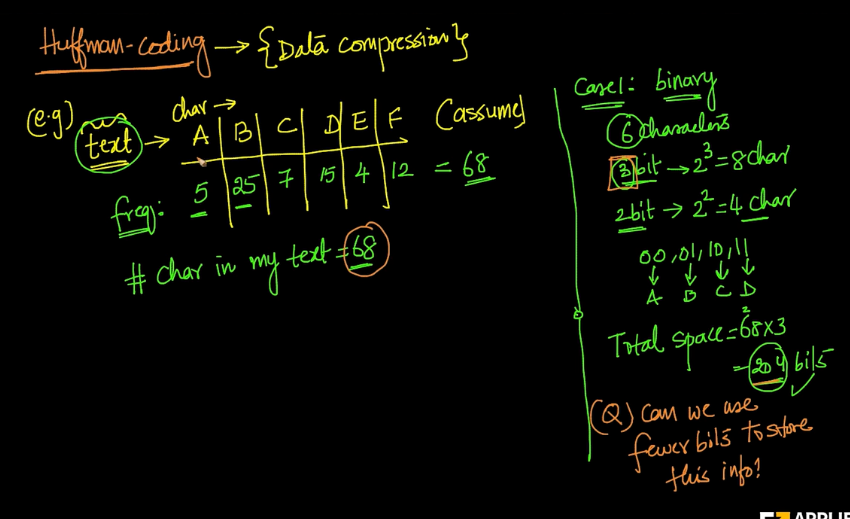 Huffman-coding → {Data compression}
(e.g) text → char → A B C D E F (assume)
freq: 5 25 7 15 4 12 = 68
# char in my text = 68
Case1: binary
6 characters
3 bit → 2^3 = 8 char
2 bit → 2^2 = 4 char
00, 01, 10, 11
A B C D
Total space = 68×3
= 204 bits ✓
(Q) Can we use
fewer bits to store
this info?
APPLIE